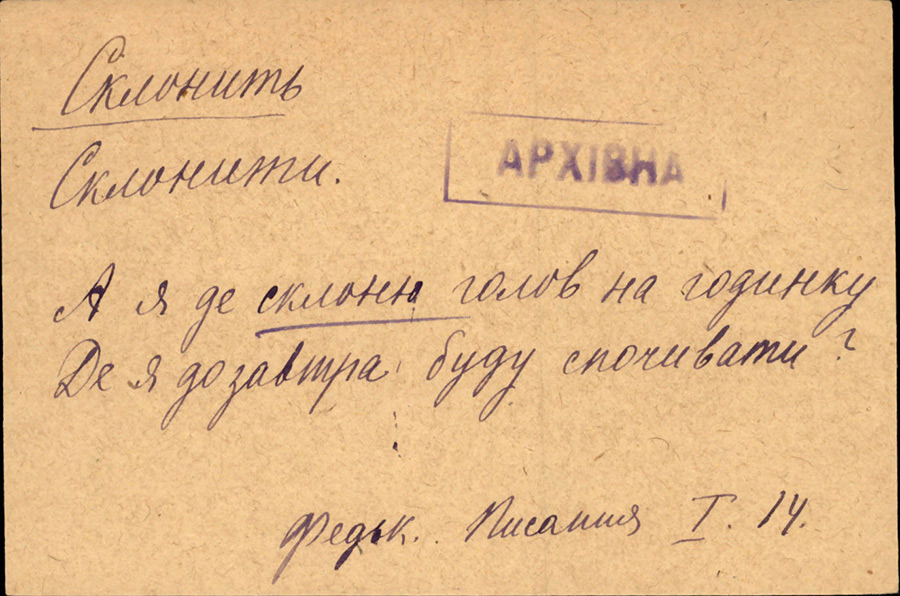 Склонить
Склонити.
АРХІВНА
А я де склоню голов на годинку
Де я до завтра буду спочивати?
Федьк. Писания I. 14.